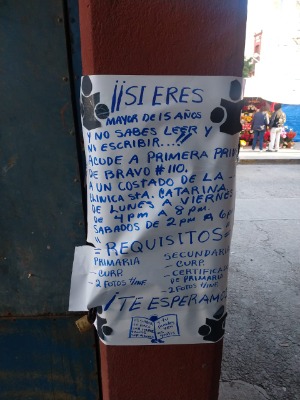 ¡¡SI ERES
MAYOR DE 15 AÑOS
Y NO SABES LEER Y
NI ESCRIBIR....!!
ACUDE A PRIMERA PRIV
DE BRAVO #110,
A UN COSTADO DE LA
CLINICA STA. CATARINA
DE LUNES A VIERNES
DE 4PM A 8PM.
SABADOS DE 2PM A 6P
"REQUISITOS"
PRIMARIA
- CURP
- 2 FOTOS T/INF
SECUNDARI
- CURP.
- CERTIFICAD
DE PRIMARIA
- 2 FOTOS T/INF
¡TE ESPERAMO